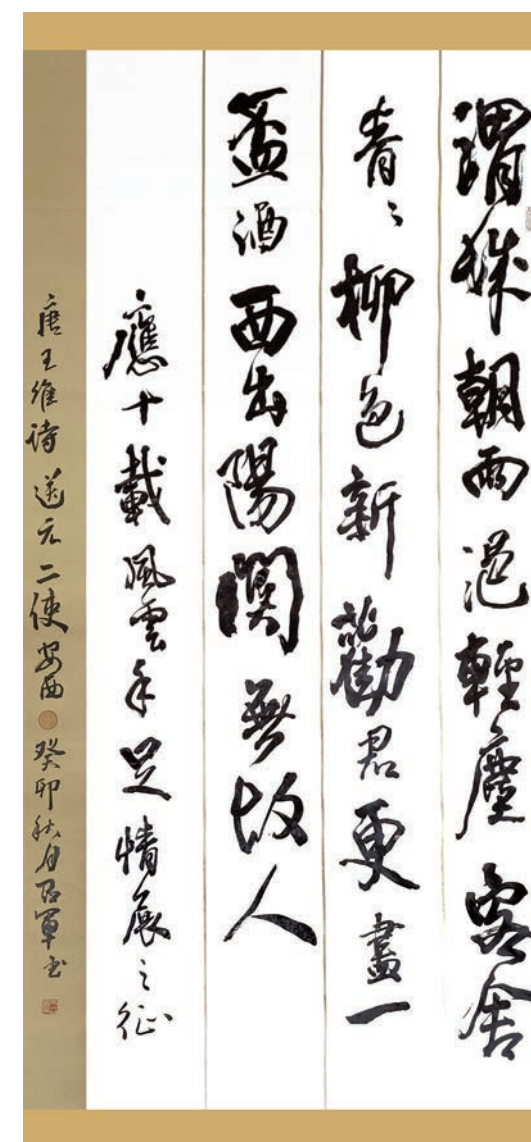 渭城朝雨浥輕塵客舍
青々柳色新勸君更盡一
盃酒西出陽關無故人
應十載風雲手足情展之征
唐王維诗 送元二使安西 癸卯秋月軍书